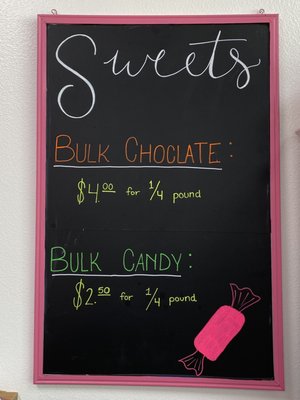 Sweets
BULK CHOCLATE:
$4.00 for 1/4 pound
BULK CANDY:
$2.50 for 1/4 pound